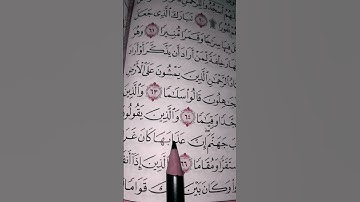 تَبَارَكَ الَّذِي جَعَلَ
فِيهَا سِرَاجًا وَقَمَرًا مُّنِيرًا ٦١ وَهُوَ
خِلْفَةً لِّمَنْ أَرَادَ أَن يَذَّكَّرَ أَوْ أَرَادَ
الرَّحْمَٰنِ الَّذِينَ يَمْشُونَ عَلَى الْأَرْضِ
قَالُوا سَلَامًا ٦٣ وَالَّذِينَ
وَقِيَامًا ٦٤ وَالَّذِينَ يَقُولُونَ
جَهَنَّمَ إِنَّ عَذَابَهَا كَانَ
مُسْتَقَرًّا وَمُقَامًا ٦٦ وَالَّذِينَ إِذَا
وَكَانَ بَيْنَ قَوَامًا